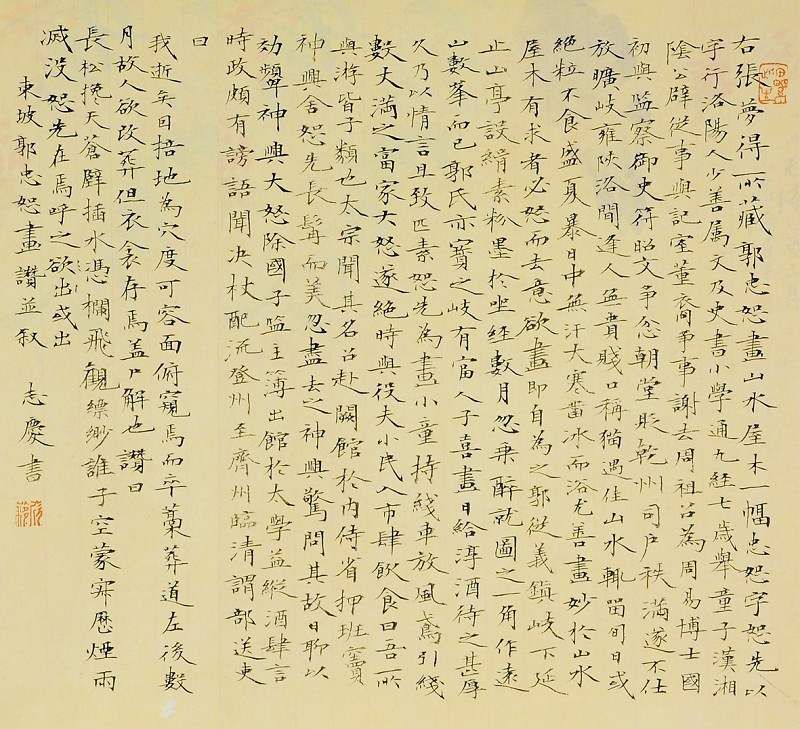 右張夢得所藏郭忠恕畫山水屋木一幅忠恕字恕先以
字行洛陽人少善屬文及史書小學通九経七歲舉童子漢湘
陰公辟從事與記室董裔爭事謝去周祖召為周易博士國
初與監察御史符昭文爭忿朝堂貶乾州司戶秩滿遂不仕
放曠岐雍陝洛間逢人無貴賤口稱猫遇佳山水輒留旬日或
絕粒不食盛夏暴日中無汗大寒鑿冰而浴尤善畫妙於山水
屋木有求者必怒而去意欲畫即自為之郭從義鎮岐下延
止山亭設絹素粉墨於坐経數月忽乘醉就圖之一角作遠
山數峯而已郭氏亦寶之岐有富人子喜畫日給淳酒待之甚厚
久乃以情言且致匹素恕先為畫小童持綫車放風鳶引綫
數丈滿之富家大怒遂絕時與役夫小民入市肆飲食曰吾所
與游皆子類也太宗聞其名召赴闕館於內侍省押班竇
神興舍恕先長髯而美忽盡去之神興驚問其故曰聊以
効顰神興大怒除國子監主簿出館於太學益縱酒肆言
時政頗有謗語聞決杖配流登州至齊州臨清謂部送吏
曰
我逝矣因掊地為穴度可容面俯窺焉而卒藁葬道左後數
月故人欲改葬但衣衾存焉蓋尸解也讚曰
長松攙天蒼壁插水憑欄飛觀縹緲誰子空蒙寂歷煙雨
滅没恕先在焉呼之欲出或出
東坡郭忠恕畫讚並叙 志慶書